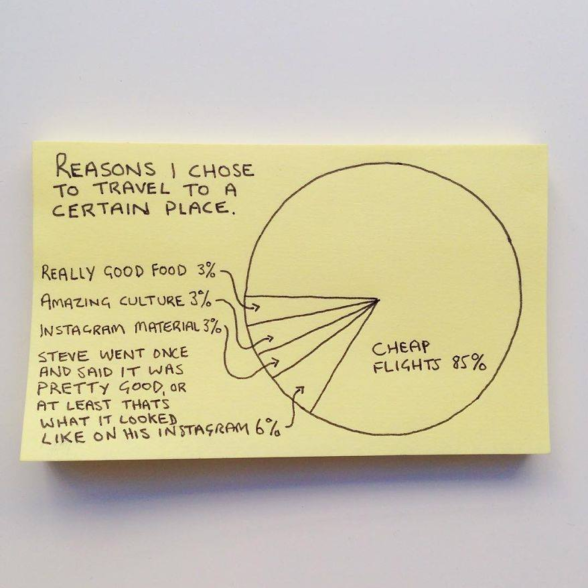 REASONS I CHOSE
TO TRAVEL TO A
CERTAIN PLACE.
REALLY GOOD FOOD 3%
AMAZING CULTURE 3%
INSTAGRAM MATERIAL 3%
STEVE WENT ONCE
AND SAID IT WAS
PRETTY GOOD, OR
AT LEAST THATS
WHAT IT LOOKED
LIKE ON HIS INSTAGRAM 6%
CHEAP
FLIGHTS 85%